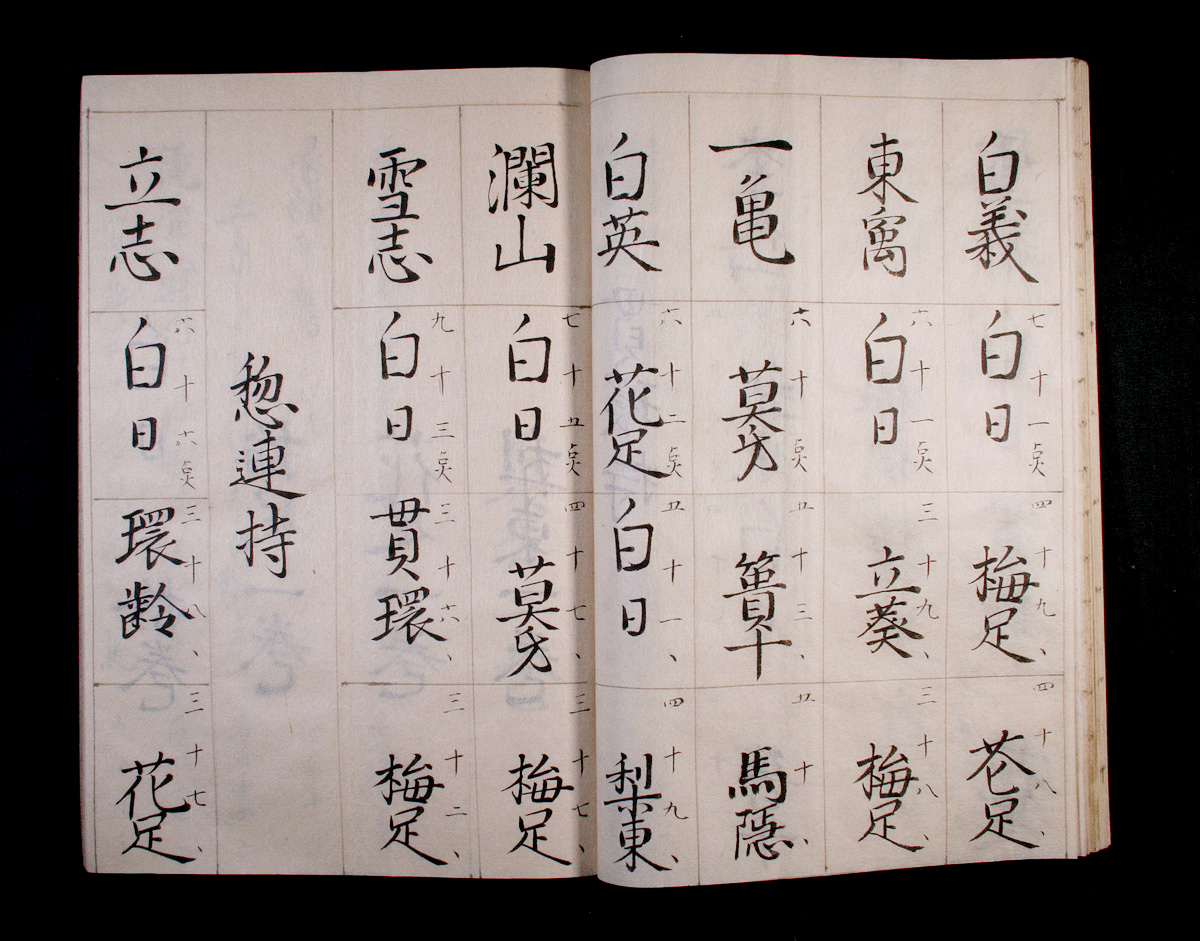 白義
七十一点
白日
四十九、
梅足
四十八、
花足
東寓
六十一点
白日
三十九、
立葵
三十八、
梅足
一亀
六十点
莫勞
五十三、
簣十
五十、
馬隠
白英
六十二点
花足
五十一、
白日
四十九、
梨東
瀾山
七十五点
白日
四十七、
莫勞
三十七、
梅足
雪志
九十三点
白日
三十六、
貫環
三十二、
梅足
惣連持
立志
六十六点
白日
三十八、
環齢
三十七、
花足